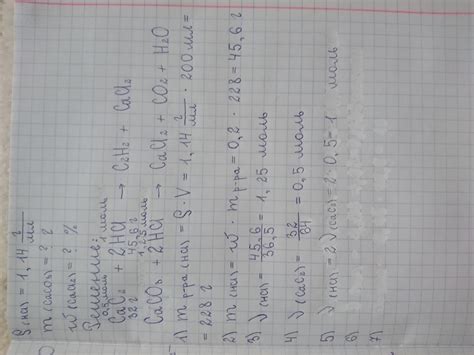 ρ(HCl) = 1,14 г/мл
m(CaCO₃) = ? г
w(CaCl₂) = ? %
Решение:
0,5моль 1 моль
CaC₂ + 2HCl → C₂H₂ + CaCl₂
32г 45,6 г
1,25моль
CaCO₃ + 2HCl → CaCl₂ + CO₂ + H₂O
1) m р-ра (HCl) = ρ · V = 1,14 г/мл · 200 мл =
= 228 г
2) m (HCl) = w · m р-ра = 0,2 · 228 = 45,6 г
3) ν (HCl) = 45,6/36,5 = 1,25 моль
4) ν (CaC₂) = 32/64 = 0,5 моль
5) ν (HCl) = 2ν (CaC₂) = 2 · 0,5 = 1 моль
6)
7)